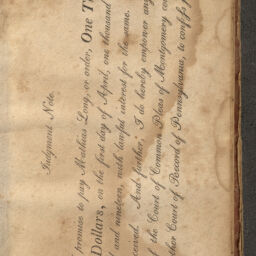 Judgment Note.
promise to pay Mathias Long, or order, One T
Dollars, on the first day of April, one thousand
and nineteen, with lawful interest for the same.
ceived. And further, I do hereby empower any
the Court of Common Pleas of Montgomery co
ther Court of Record of Pennsylvania, to confess